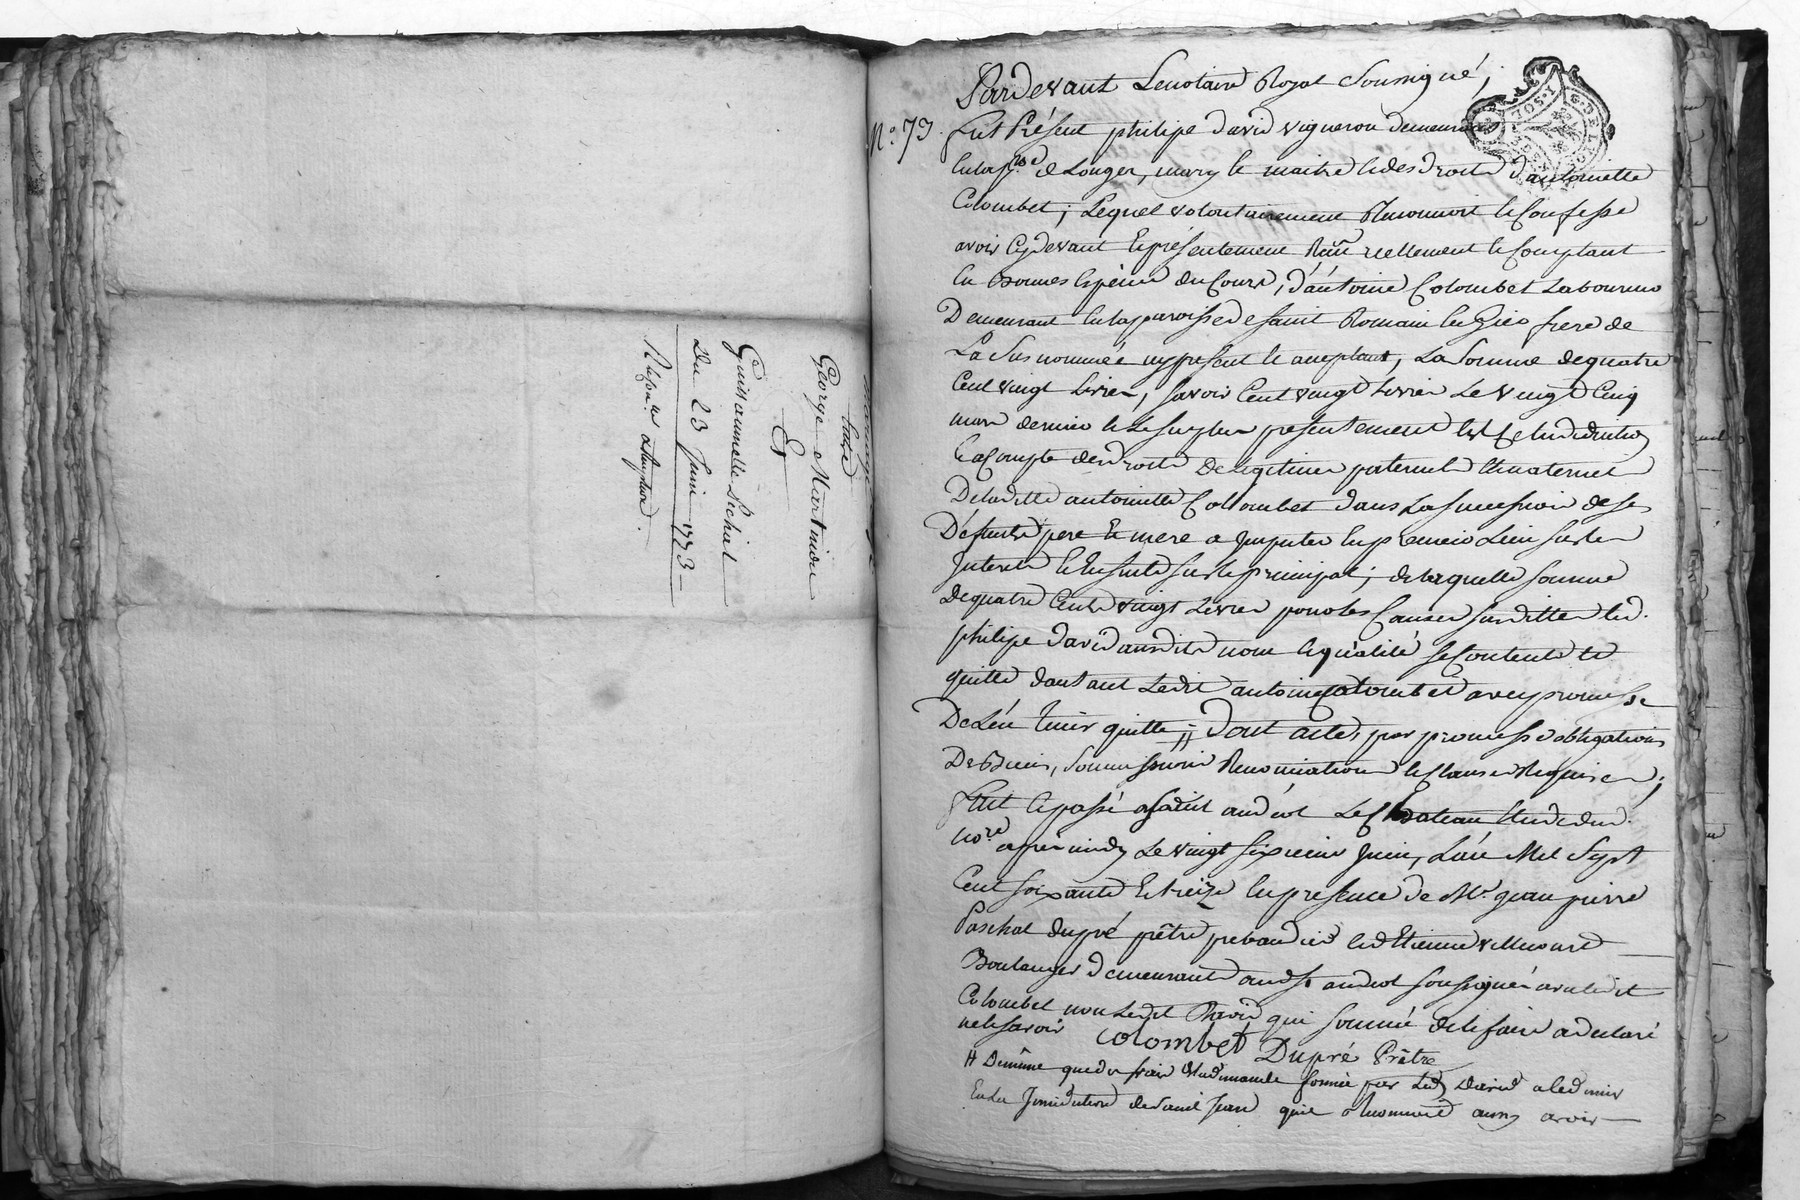 mariage
Entre
George Martinier
Et
Guisaumette Lichal
Du 23 Juin 1773
N.° 73.
Pardevant Lenotaire Royal Soussigné,
fut Présent philipe david vigneron demeurant
de Longes, mary et maitre desdroits d'antoinette
Colombet; Lequel volontairement Reconnoit et Confesse
avoir Cydevant et présentement Reçu réellement et Comptant
En bonnes Espèces du Cours, d'antoine Colombet Laboureur
Demeurant En la paroisse de saint Romain En Gier frere de
La Sus nommée icy présent et acceptant, La Somme de quatre
Cent vingt Livres, savoir Cent vingt Livres Le Vingt Cinq
mars dernier et Le surplus présentement
Et a Compte des Droits De legitimes paternels et maternels
De laditte antoinette Colombet dans La succession de ses
Défunts pere et mere a imputer En premier Lieu sur les
Interets et Ensuite sur le principal; de laquelle somme
De quatre Cents vingt Livres pour les Causes susdittes led.
philipe david ausdits nom et qualité se Contente et
quitte d'autant Ledit antoine Colombet avec promesse
De L'en tenir quitte // dont acte, par promesse obligation
De Biens, soumissions Renonciations et Clauses Requises;
fait et passé a saint andéol Le Chateau Etude dud.
no.re après midy Le vingt sixieme Juin, L'an Mil Sept
Cent soixante Et treize En presence de M.r jean pierre
Paschal dupré prêtre prebandier et d'Etienne
Boulanger demeurants aud st andeol soussignés avec ledit
Colombet non Ledit David qui sommé de le faire a déclaré
ne le savoir
Colombet Dupré Prêtre
// De même que des frais de la demande formée par Led david
de saint Jean qu'il Reconnoit aussy avoir